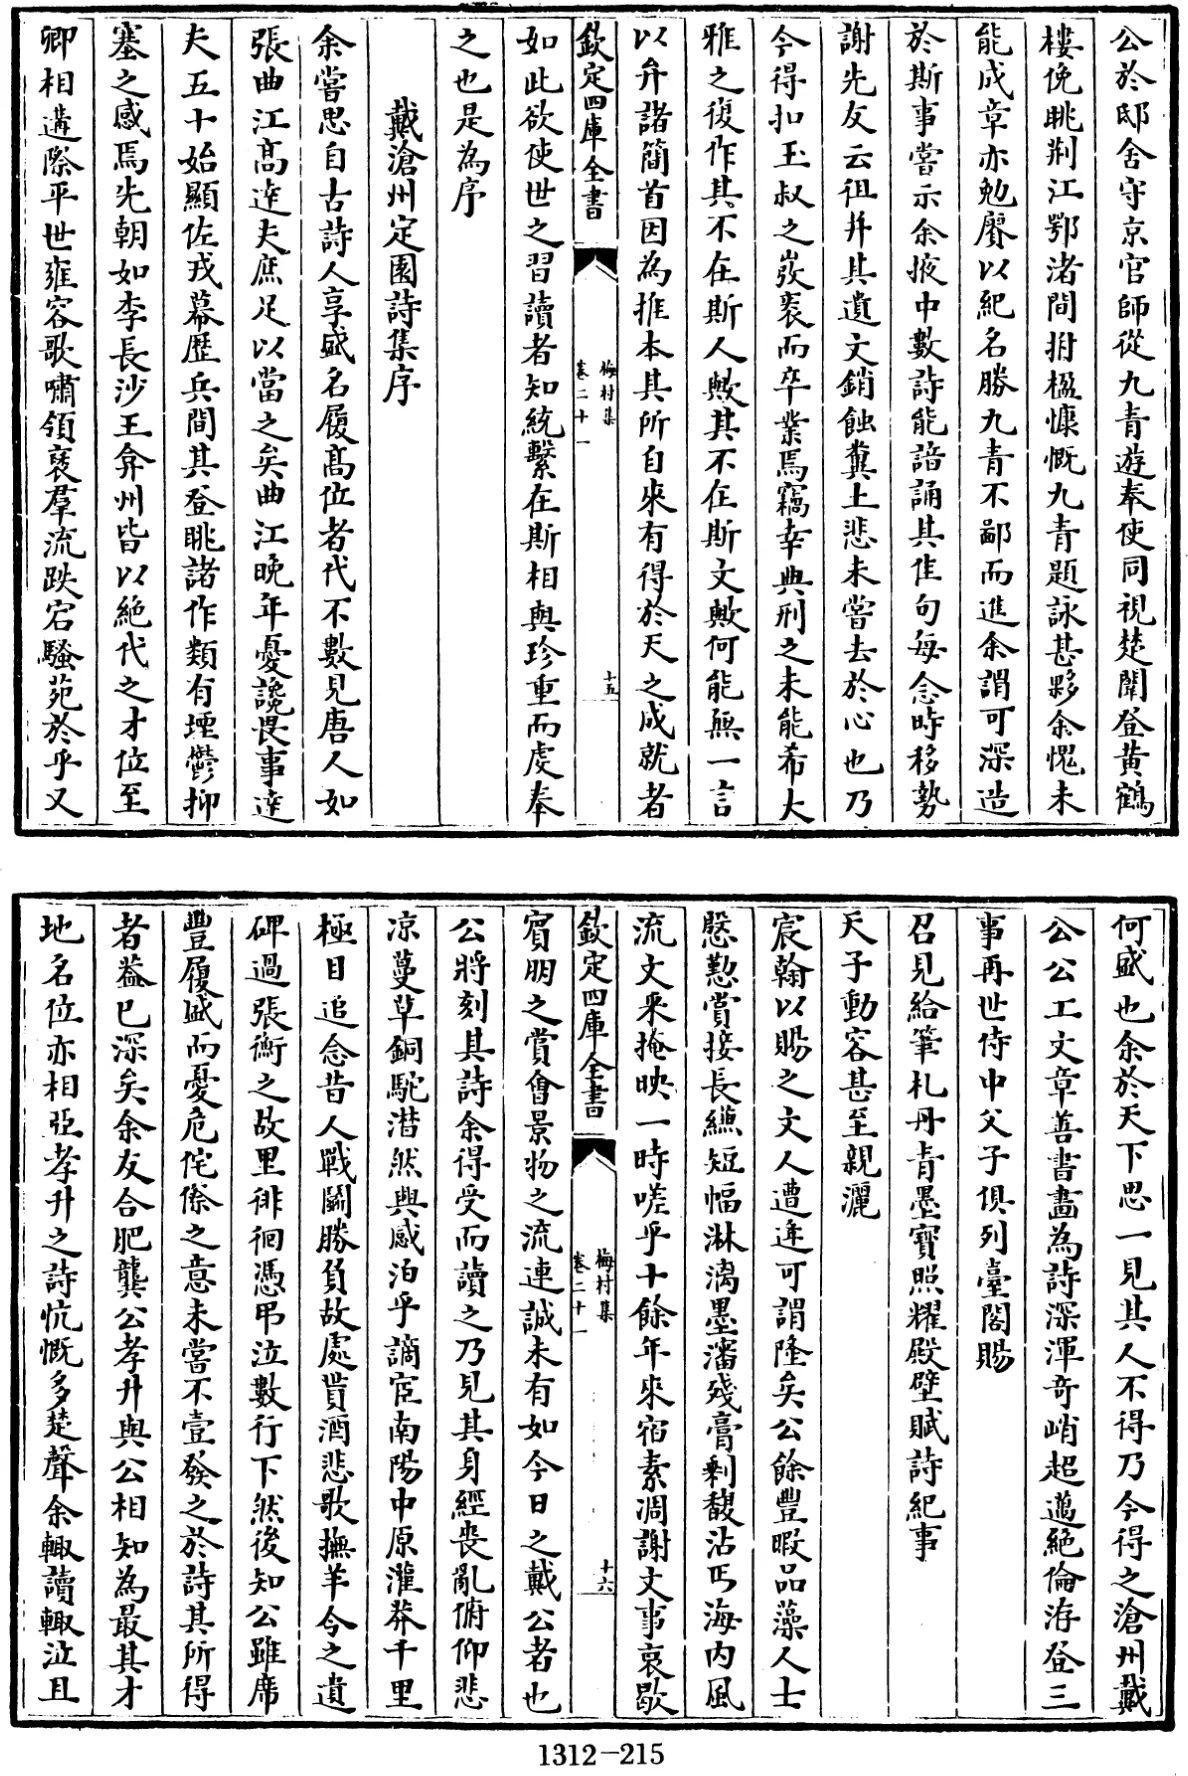 公於邸舍守京官師從九青遊奉使同視楚闈登黄鶴
樓俛眺荆江鄂渚間拊楹慷慨九青題詠甚夥余愧未
能成章亦勉賡以紀名勝九青不鄙而進余謂可深造
於斯事嘗示余掖中數詩能諳誦其佳句每念時移勢
謝先友云徂并其遺文銷蝕糞土悲未嘗去於心也乃
今得扣玉叔之嵗裘而卒業焉竊幸典刑之未能希大
雅之復作其不在斯人歟其不在斯文歟何能無一言
以弁諸簡首因為推本其所自來有得於天之成就者
欽定四庫全書
梅村集
卷二十一
十五
如此欲使世之習讀者知統繫在斯相與珍重而虔奉
之也是為序
戴滄州定園詩集序
余嘗思自古詩人享盛名履髙位者代不數見唐人如
張曲江髙達夫庶足以當之矣曲江晩年憂讒畏事達
夫五十始顯佐戎幕歴兵間其登眺諸作類有堙鬱抑
塞之感焉先朝如李長沙王弇州皆以絶代之才位至
卿相遘際平世雍容歌嘯領袠羣流跌宕騷苑於乎又
何盛也余於天下思一見其人不得乃今得之滄州戴
公公工文章善書畵為詩深渾奇峭超邁絶倫洊登三
事再世侍中父子俱列臺閣賜
召見給筆札丹青墨寶照耀殿壁賦詩紀事
天子動容甚至親灑
宸翰以賜之文人遭逢可謂隆矣公餘豐暇品藻人士
慇懃賞接長縑短幅淋漓墨瀋殘膏剩馥沾丐海内風
流文采掩映一時嗟乎十餘年來宿素凋謝文事衰歇
欽定四庫全書
梅村集
卷二十一
十六
賓朋之賞會景物之流連誠未有如今日之戴公者也
公將刻其詩余得受而讀之乃見其身經喪亂俯仰悲
凉蔓草銅駝潸然興感泊乎謫宦南陽中原灌莽千里
極目追念昔人戰鬬勝負故處貰酒悲歌撫羊今之遺
碑過張衡之故里徘徊憑弔泣數行下然後知公雖席
豐履盛而憂危侘傺之意未嘗不壹發之於詩其所得
者葢已深矣余友合肥龔公孝升與公相知為最其才
地名位亦相亞孝升之詩忼慨多楚聲余輙讀輙泣且
1312-215